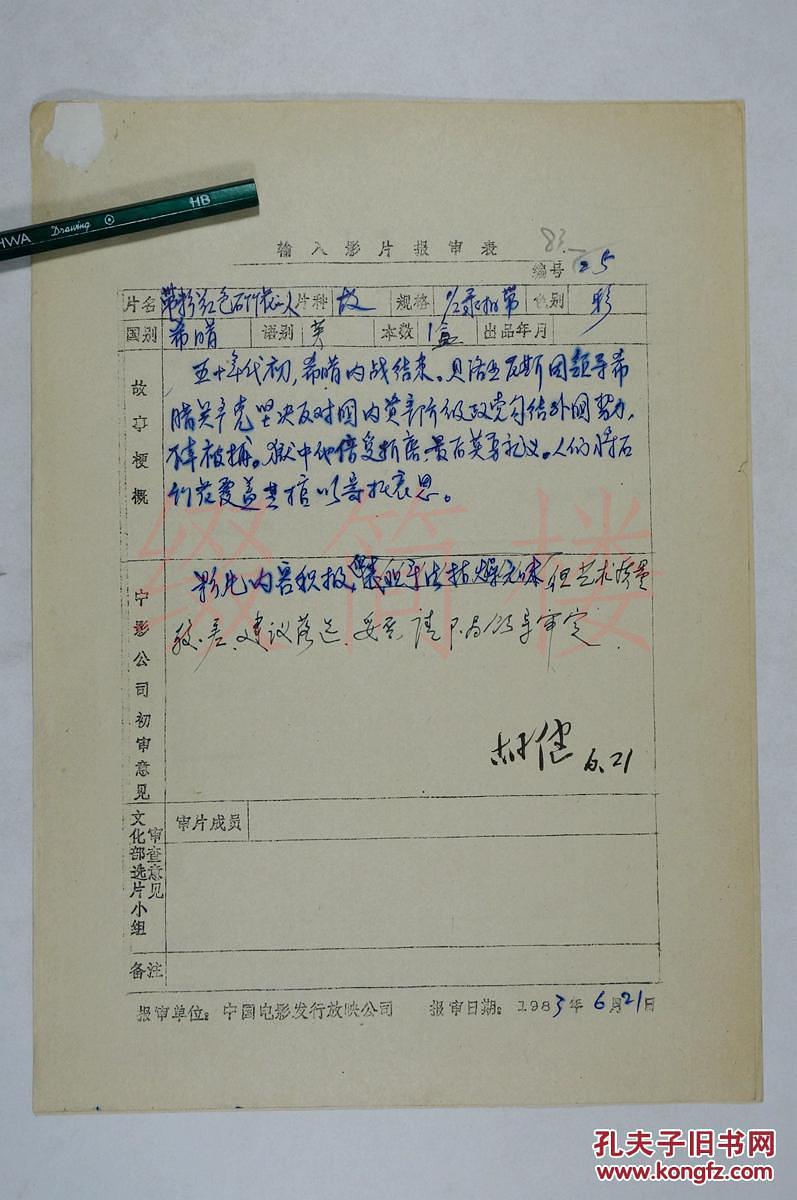 HWA Drawing HB
83.
输入影片报审表
编号 25
片名 带粉红色石竹花的人 片种 故 规格 录相带 色别 彩
国别 希腊 语别 英 本数 1盒 出品年月
故事梗概
五十年代初，希腊内战结束。贝洛亚尼斯因领导希
腊共产党坚决反对国内资产阶级政党勾结外国势力，
不幸被捕。狱中他倍受折磨，最后英勇就义。人们将石
竹花覆盖其棺以寄托哀思。
中影公司初审意见
影片内容积极，但手法枯燥 但艺术质量
较差，建议落选。妥否，请部局领导审定。
胡健 6.21
文化部选片小组审查意见
审片成员
备注
报审单位：中国电影发行放映公司 报审日期：1983年6月21日
缀简楼
孔夫子旧书网
www.kongfz.com